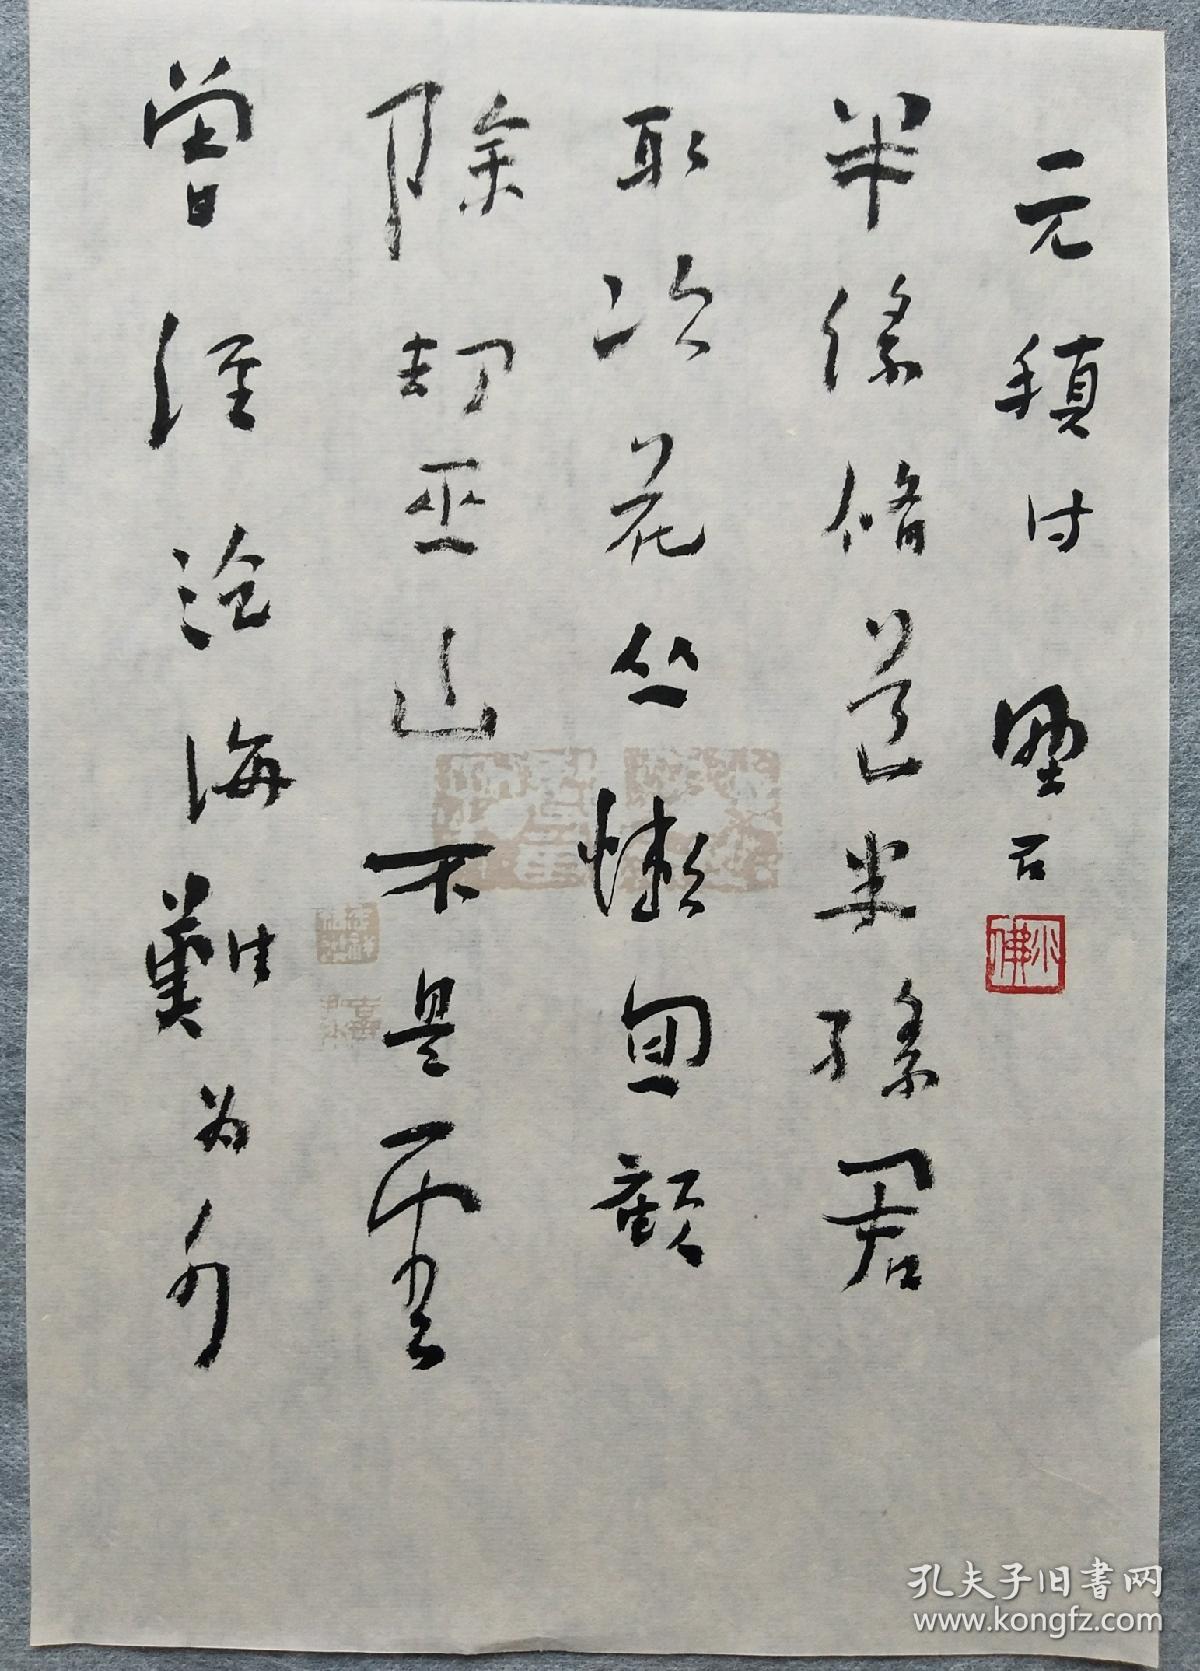 曾经沧海難为水
除却巫山不是雲
取次花丛懒回顧
半缘修道半缘君
元稹诗
孔夫子旧書网
www.kongfz.com